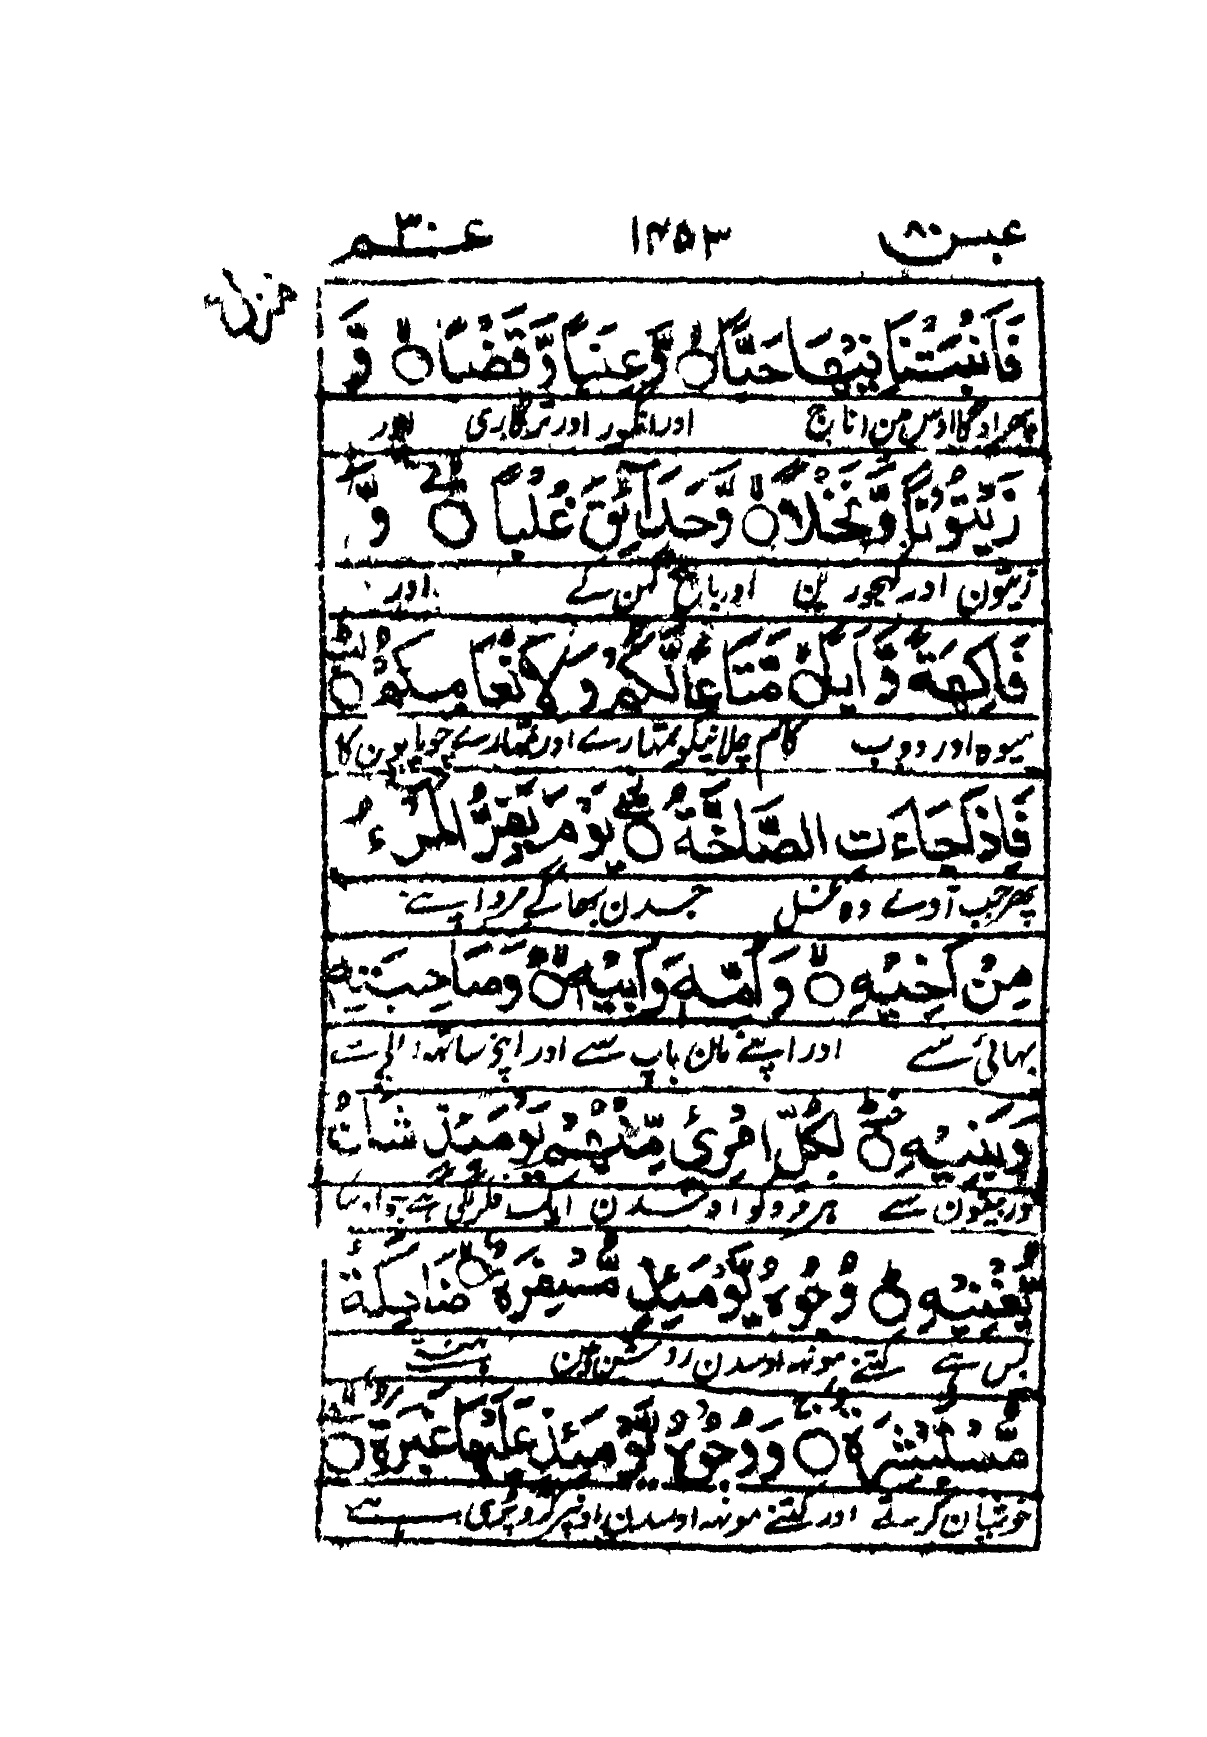 عبس ٨٠ ١٢٥٣ عم ٣٠
فَاَنْۢبَتْنَا فِيْهَا حَبًّا ۙ وَّعِنَبًا وَّقَضْبًا ۙ وَّ
پھر اوگایا اوس من اناج اور انگور اور ترکاری اور
زَيْتُوْنًا وَّنَخْلًا ۙ وَّحَدَآئِقَ غُلْبًا ۙ وَّ
زیتون اور کھجورین اور باغ گھن کے اور
فَاكِهَةً وَّاَبًّا ۙ مَّتَاعًا لَّكُمْ وَلِاَنْعَامِكُمْ ۙ
میوہ اور دوب کام چلانیکو تمہارے اور تمہارے چوپایون کا
فَاِذَا جَآءَتِ الصَّآخَّةُ ۙ يَوْمَ يَفِرُّ الْمَرْءُ
پھر جب آوے وہ غل جسدن بھاگے مرد اپنے
مِنْ اَخِيْهِ ۙ وَاُمِّهٖ وَاَبِيْهِ ۙ وَصَاحِبَتِهٖ
بھائی سے اور اپنے مان باپ سے اور اپنی ساتھ والی سے
وَبَنِيْهِ ۙ لِكُلِّ امْرِئٍ مِّنْهُمْ يَوْمَئِذٍ شَاْنٌ
اور بیٹون سے ہر مرد کو اوسدن ایک فکر لگا ہے جو اوسکا
يُّغْنِيْهِ ۙ وُجُوْهٌ يَّوْمَئِذٍ مُّسْفِرَةٌ ۙ ضَاحِكَةٌ
بس ہے کتنے مونہہ اوسدن روشن ہین ہنستے
مُّسْتَبْشِرَةٌ ۚ وَوُجُوْهٌ يَّوْمَئِذٍ عَلَيْهَا غَبَرَةٌ ۙ
خوشیان کرتے اور کتنے مونہہ اوسدن اونپر گرد پڑی ہے